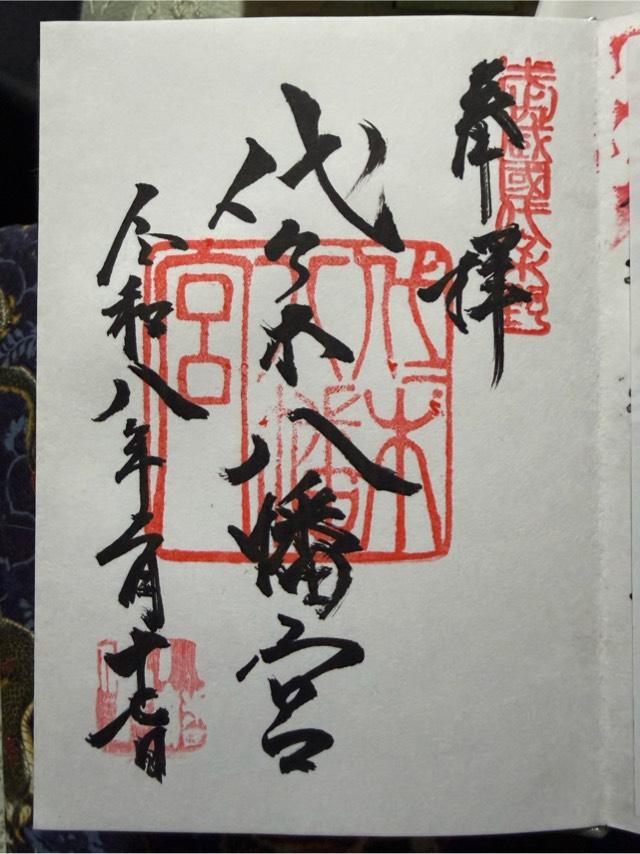 奉拝
武蔵國代々木野
代々木八幡宮
代々木
八幡
宮
令和八年二月十七日